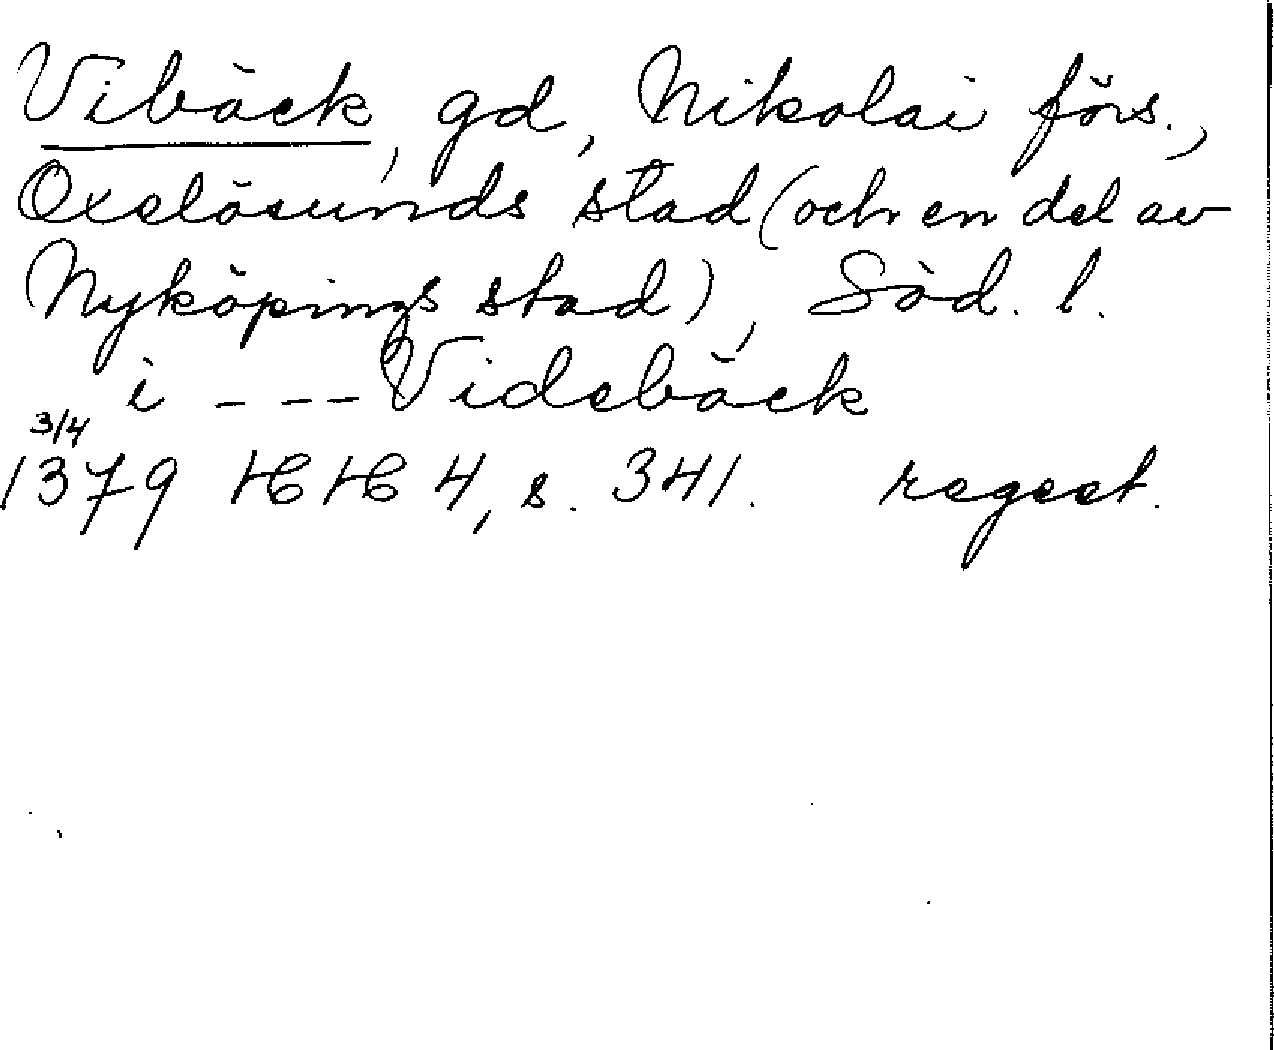 Vibäck, gd, Nikolai förs.,
Oxelösunds stad (och en del av
Nyköpings stad), Söd. l.
i --- Videbäck
3/4
1379 HH 4, s. 341. regest.